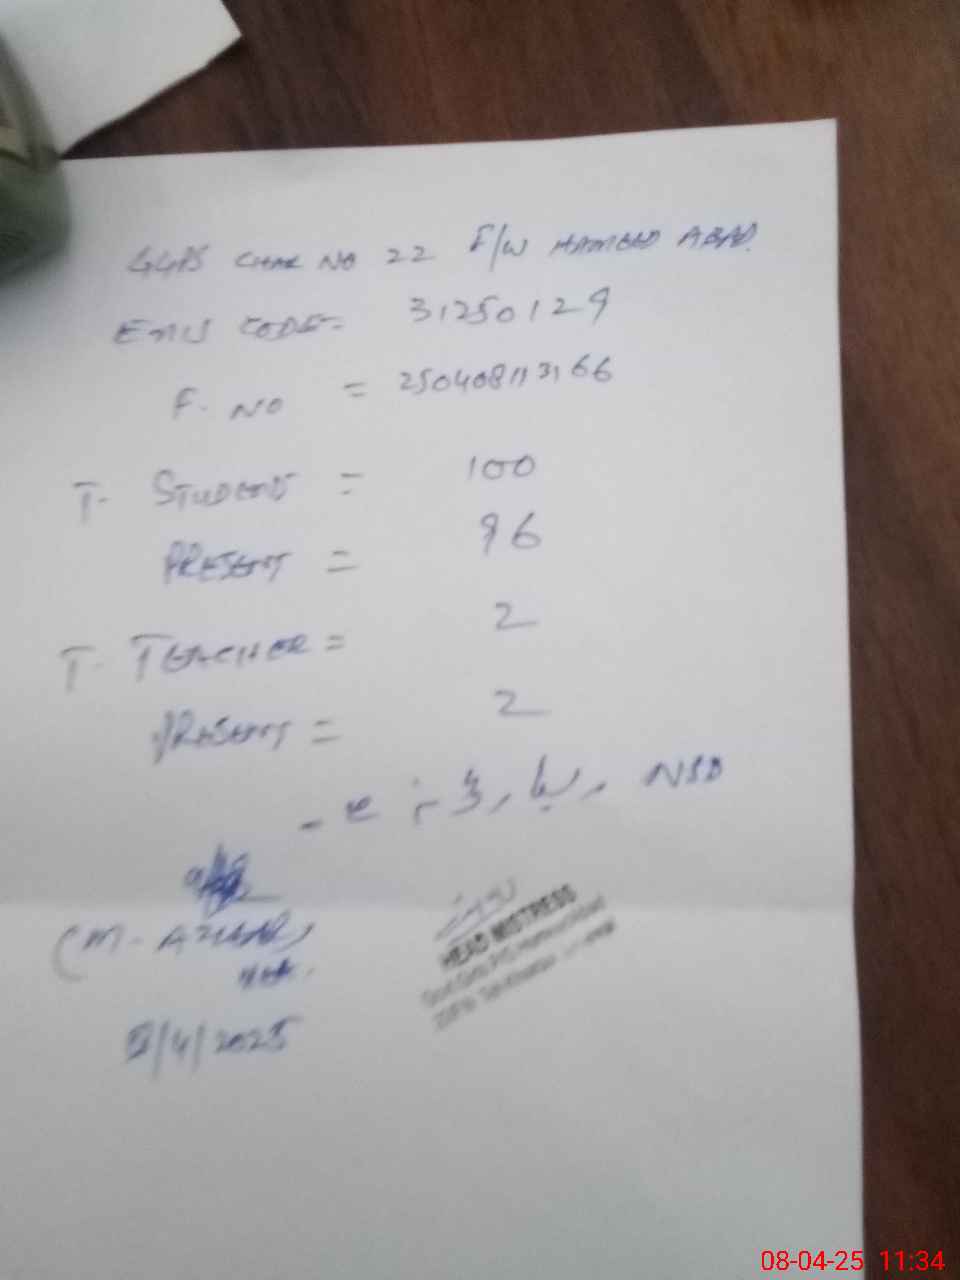 GGPS CHAK NO 22 F/W HAMEED ABAD.
EMIS CODE = 31250129
F. NO = 250408113166
T. STUDENT = 100
PRESENT = 96
T. TEACHER = 2
PRESENT = 2
NSB
(M. AZHAR)
/4/2025
HEAD MISTRESS
08-04-25 11:34